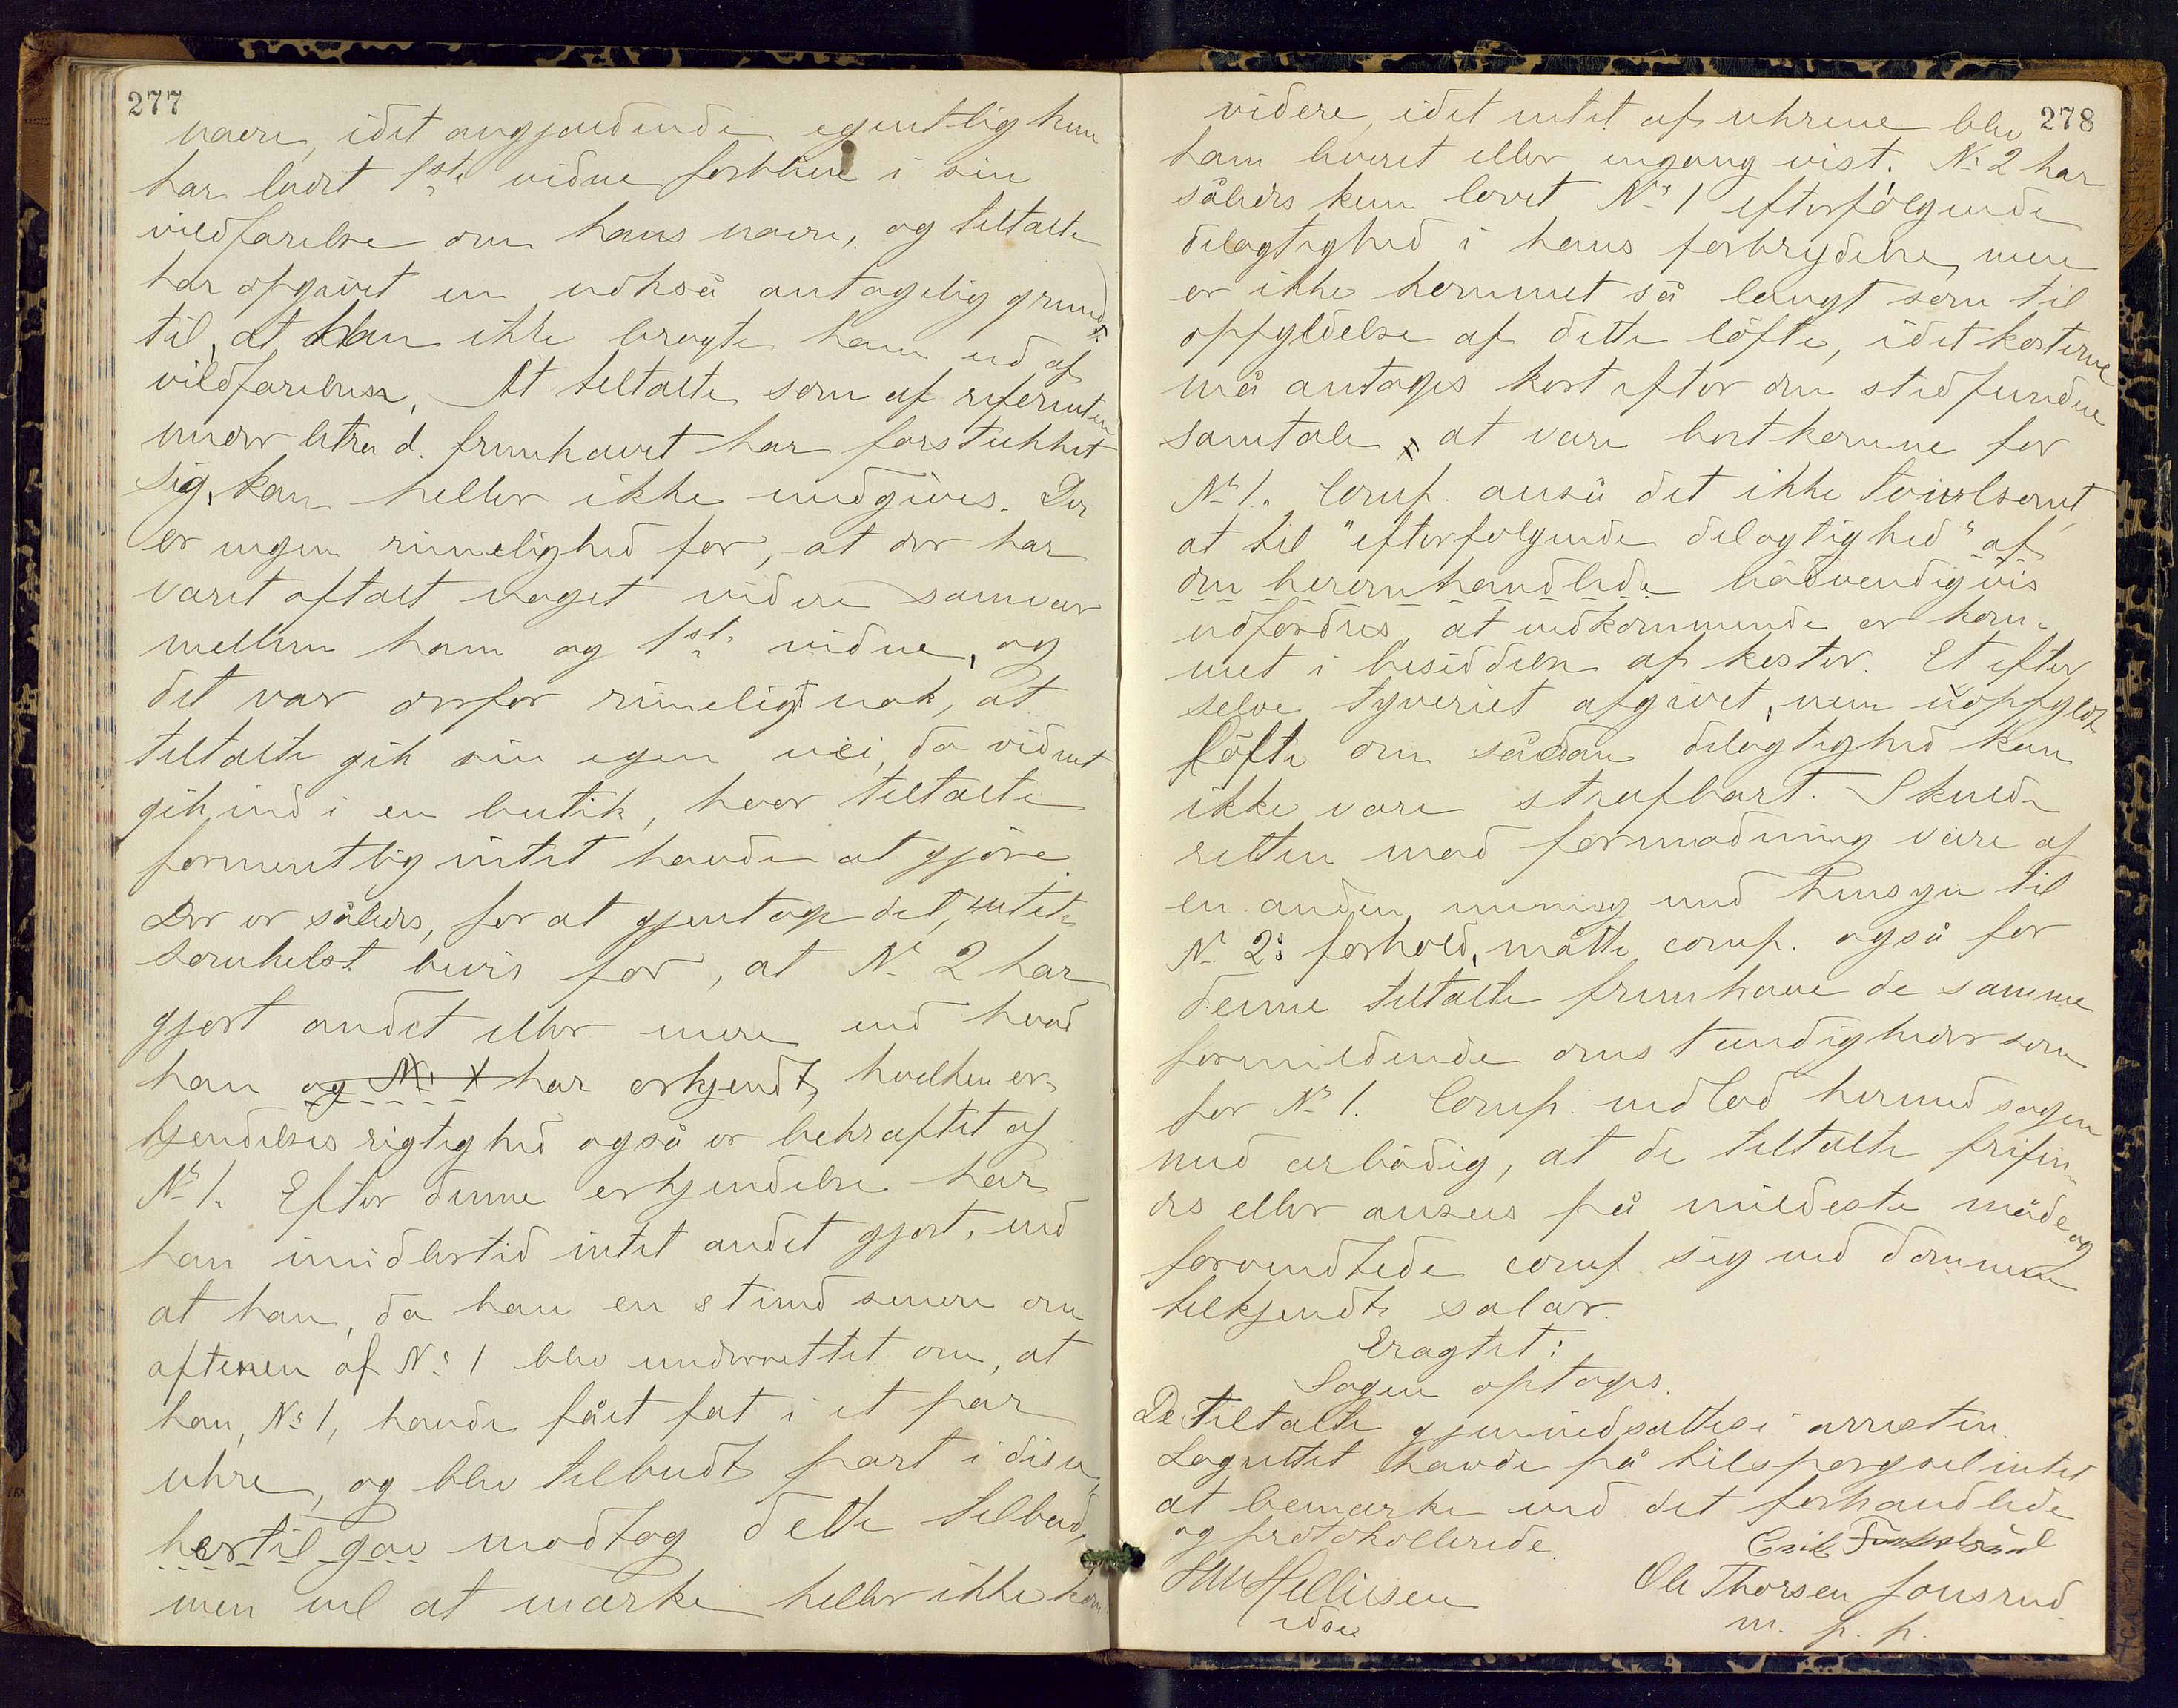 277
navn, idet angjældende egentlig kun
har ladet 1ste vidne forblive i sin
vildfarelse om hans navn, og tiltalte
har opgivet en nokså antagelig grund
til, at han ikke bragte ham ud af
vildfarelsen. At tiltalte som af referenten
under litra d. fremhævet har forstukket
sig, kan heller ikke medgives. Der
er ingen rimelighed for, at der har
været aftalt noget videre samvær
mellem ham og 1ste vidne, og
det var derfor rimeligt nok, at
tiltalte gik sin egen vei, da vidnet
gik ind i en butik, hvor tiltalte
formentlig intet havde at gjøre.
Der er således, for at gjentage det, intet
somhelst bevis for, at No 2 har
gjort andet eller mere end hvad
han og No 1 har erkjendt, hvilken er-
kjendelses rigtighed også er bekræftet af
No 1. Efter denne erkjendelse har
han imidlertid intet andet gjort, end
at han, da han en stund senere om
aftenen af No 1 blev underrettet om, at
han, No 1, havde fået fat i et par
uhre, og blev tilbudt part i disse,
hertil gav modtog dette tilbud,
men vel at mærke heller ikke kom
278
videre, idet intet af uhrene blev
ham leveret eller engang vist. No 2 har
således kun lovet No 1 efterfølgende
delagtighed i hans forbrydelse, men
er ikke kommet så langt som til
opfyldelse af dette løfte, idet kosterne
må antages kort efter den stedfundne
samtale at være bortkomne for
No 1. Comp. anså det ikke tvivlsomt,
at til "efterfølgende delagtighed" af
den heromhandlede nødvendigvis
udfordres, at vedkommende er kom-
met i besiddelse af koster. Et efter
selve tyveriet afgivet, men uopfyldt
løfte om sådan delagtighed kan
ikke være strafbart. Skulde
retten mod formodning være af
en anden mening med hensyn til
No 2s forhold, måtte comp. også for
denne tiltalte fremhæve de samme
formildende omstændigheder som
for No 1. Comp. indlod hermed sagen
med ærbødig, at de tiltalte frifin-
des eller ansees på mildeste måde og
forventede comp. sig ved dommen
tilkjendt salær.
Eragtet:
Sagen optages.
De tiltalte gjenindsattes i arresten.
Lagrettet havde på tilspørgsel intet
at bemærke ved det forhandlede
og protokollerede.
Ole Thorsen Jonsrud
m. p. p.